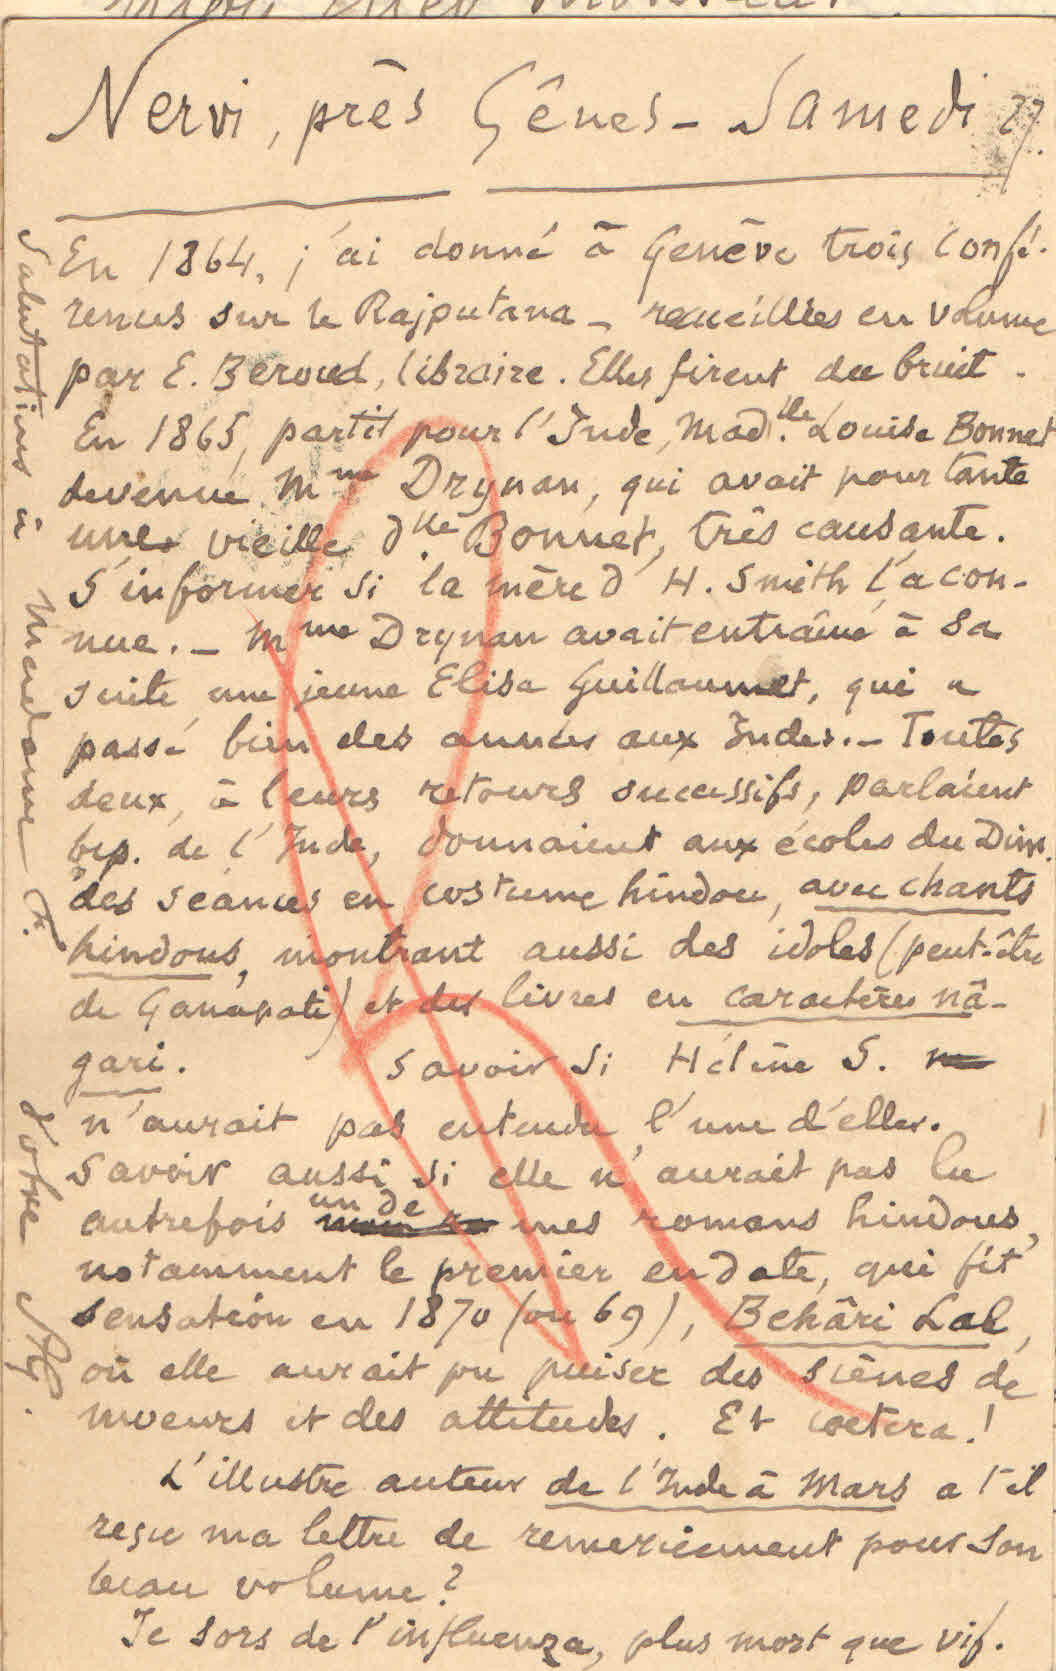 Nervi, près Gênes - Samedi 27.
En 1864, j'ai donné à Genève trois confé-
rences sur le Rajputana - recueillies en volume
par E. Beroud, libraire. Elles firent du bruit.
En 1865, partit pour l'Inde, Mad.lle Louise Bonnet
devenue Mme Drynan, qui avait pour tante
une vieille dlle Bonnet, très causante.
S'informer si la mère d' H. Smith l'a con-
nue. - Mme Drynan avait entraîné à sa
suite une jeune Elisa Guillaumet, qui a
passé bien des années aux Indes. - Toutes
deux, à leurs retours successifs, parlaient
bcp. de l'Inde, donnaient aux écoles du Dim.
des séances en costume hindou, avec chants
hindous, montrant aussi des idoles (peut-être
de Ganapati) et des livres en caractères nâ-
gari. Savoir si Hélène S.
n'aurait pas entendu l'une d'elles.
Savoir aussi si elle n'aurait pas lu
autrefois un de mes romans hindous,
notamment le premier en date, qui fit
sensation en 1870 (ou 69), Behâri Lal,
où elle aurait pu puiser des scènes de
moeurs et des attitudes. Et coetera!
L'illustre auteur de l'Inde à Mars a t'il
reçu ma lettre de remerciement pour son
beau volume?
Je sors de l'influenza, plus mort que vif.
Salutations à Madame F. Votre